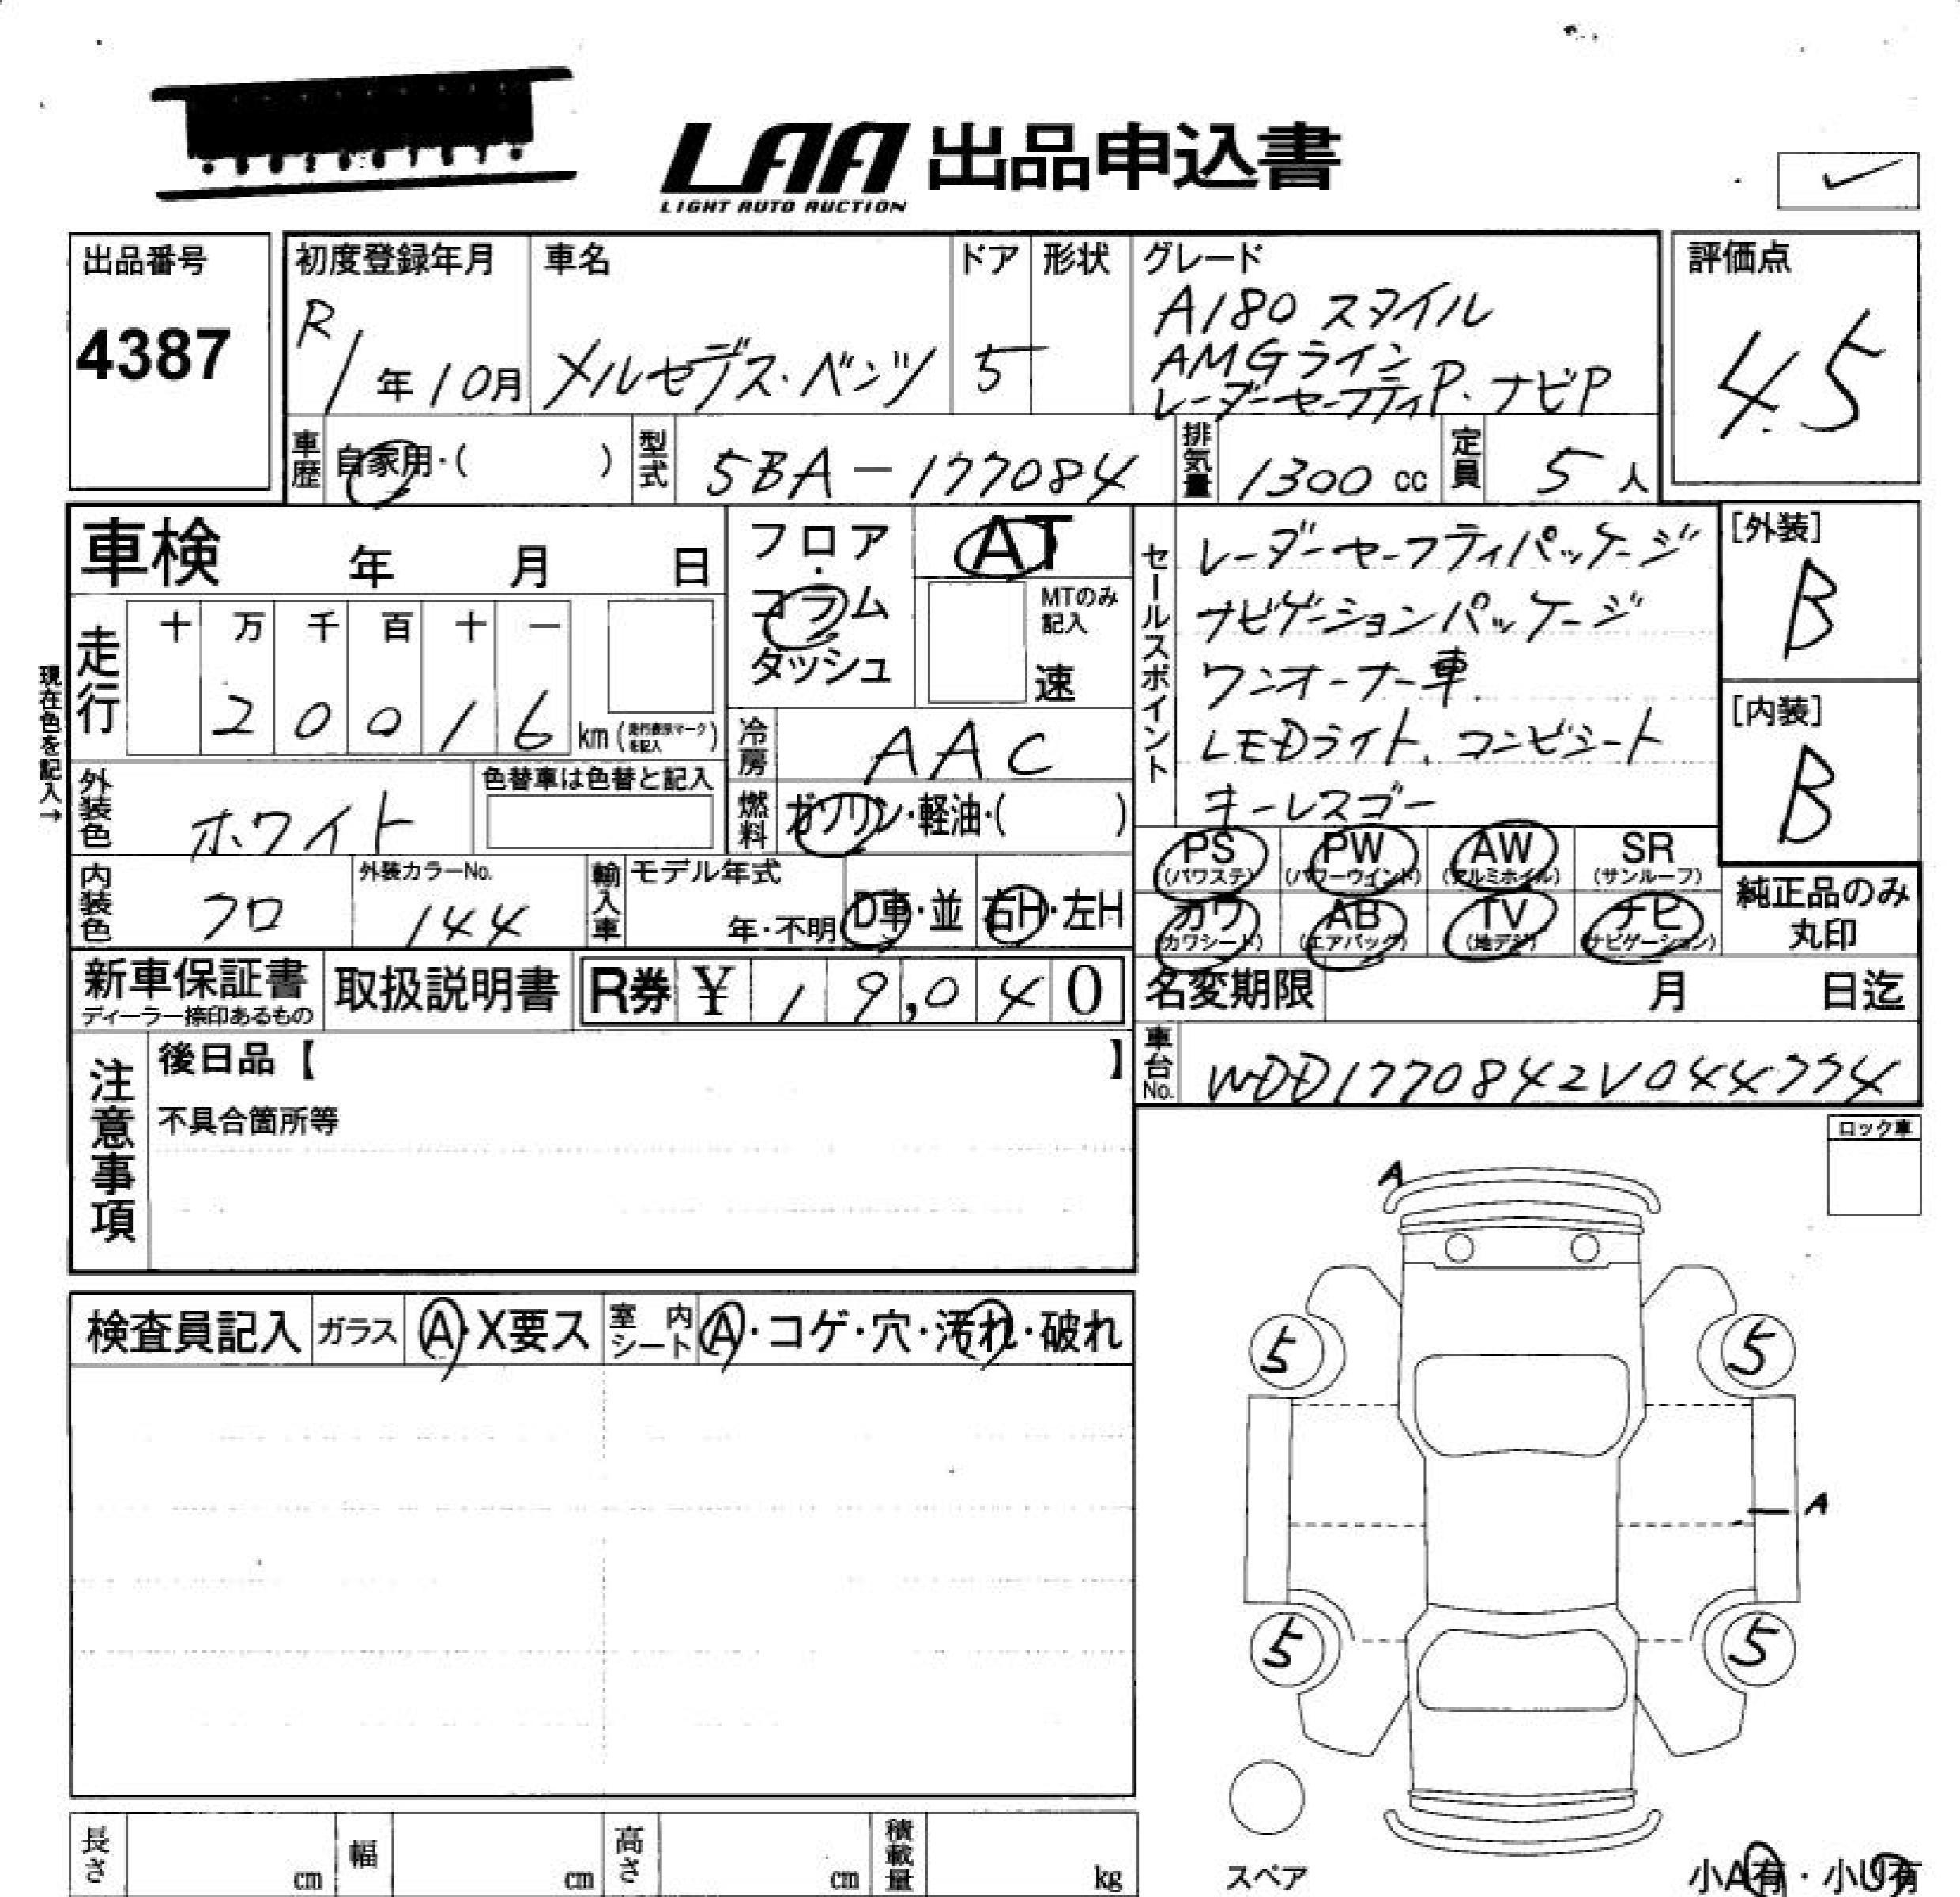 LAA 出品申込書
LIGHT AUTO AUCTION
出品番号
4387
初度登録年月
R1年10月
車名
メルセデス・ベンツ
ドア
5
形状
グレード
A180 スタイル
AMGライン
レーダーセーフティP・ナビP
評価点
4.5
車歴
自家用・( )
型式
5BA-177084
排気量
1300 cc
定員
5人
車検 年 月 日
フロア・コラム
ダッシュ
AT
MTのみ
記入
速
セールスポイント
レーダーセーフティパッケージ
ナビゲーションパッケージ
ワンオーナー車
LEDライト、コンビシート
キーレスゴー
[外装]
B
[内装]
B
現在色を記入→
走行
十 万 千 百 十 一
2 0 0 1 6 km (走行表示マークを記入)
冷房
AAC
外装色
ホワイト
色替車は色替と記入
燃料
ガソリン・軽油・( )
内装色
クロ
外装カラーNo.
144
輸入車
モデル年式
年・不明
D車・並
右H・左H
PS
(パワステ)
PW
(パワーウインド)
AW
(アルミホイル)
SR
(サンルーフ)
カワ
(カワシート)
AB
(エアバック)
TV
(地デジ)
ナビ
(ナビゲーション)
純正品のみ
丸印
新車保証書
ディーラー捺印あるもの
取扱説明書
R券 ¥ 19,040
名変期限 月 日迄
車台No.
WDD1770842V044774
注意事項
後日品【 】
不具合箇所等
ロック車
検査員記入
ガラス
A・X要ス
室内シート
A・コゲ・穴・汚れ・破れ
A
5
5
A
5
5
スペア
小A有・小U有
長さ cm
幅 cm
高さ cm
積載量 kg